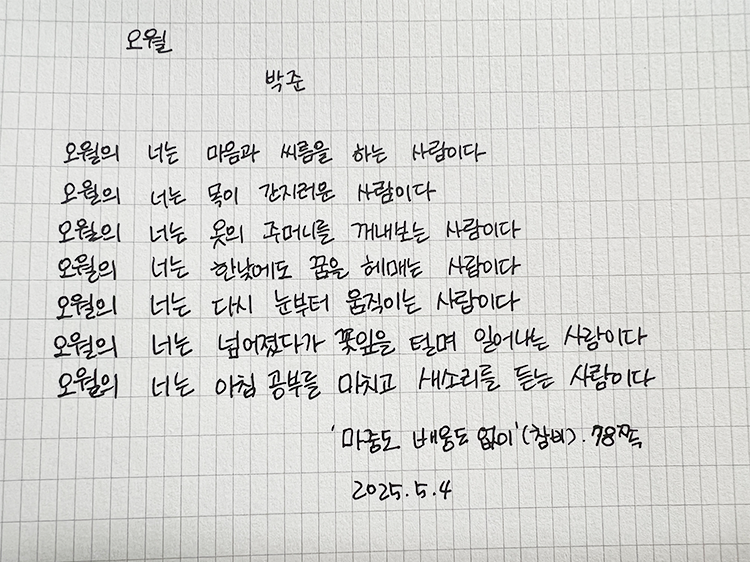 오월
박준
오월의 너는 마음과 씨름을 하는 사람이다
오월의 너는 목이 간지러운 사람이다
오월의 너는 옷의 주머니를 꺼내보는 사람이다
오월의 너는 한낮에도 꿈을 헤매는 사람이다
오월의 너는 다시 눈부터 움직이는 사람이다
오월의 너는 넘어졌다가 꽃잎을 털며 일어나는 사람이다
오월의 너는 아침 공부를 마치고 새소리를 듣는 사람이다
'마중도 배웅도 없이'(창비). 78쪽
2025.5.4